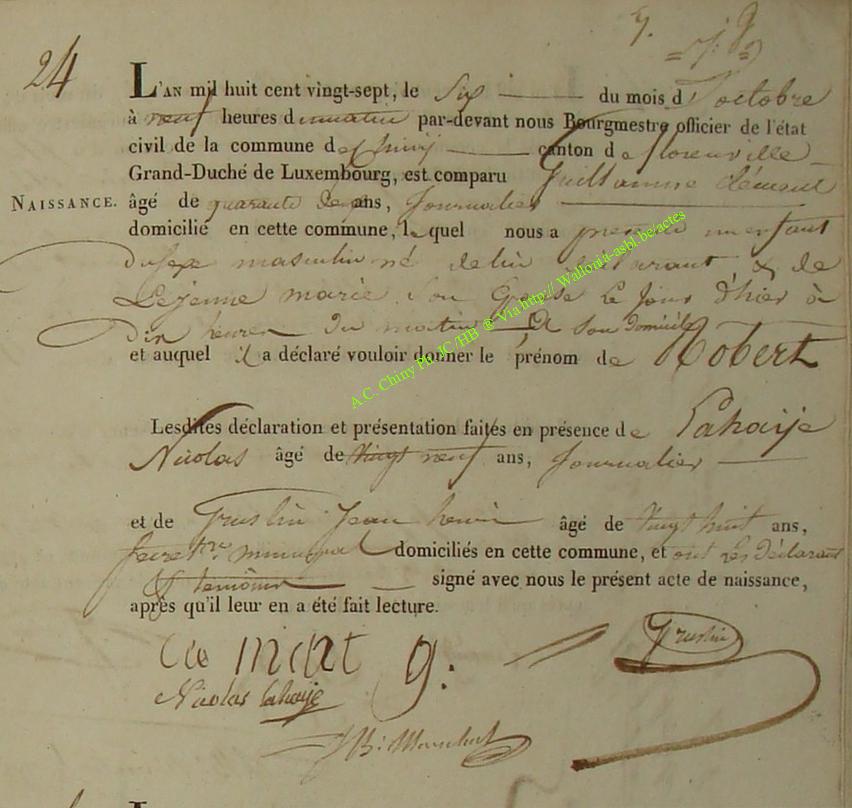 24
L'AN mil huit cent vingt-sept, le Six du mois d'octobre
à neuf heures du matin par-devant nous Bourgmestre officier de l'état
civil de la commune de Chiny canton de florenville
Grand-Duché de Luxembourg, est comparu Guillaume Clément
NAISSANCE. âgé de quarante deux ans, Journalier
domicilié en cette commune, lequel nous a présenté un enfant
du sexe masculin né de lui déclarant & de
Lejeune marie Son Epouse Le Jour d'hier à
Dix heures Du matin En Son domicile
et auquel il a déclaré vouloir donner le prénom de Robert
Lesdites déclaration et présentation faites en présence de Lahaije
Nicolas âgé de Vingt neuf ans, Journalier
et de Gruslin Jean henri âgé de Vingt huit ans,
Secret.re municipal domiciliés en cette commune, et ont Les déclarant
& temoins signé avec nous le présent acte de naissance,
après qu'il leur en a été fait lecture.
g:
Gruslin
Nicolas lahaije
A.C. Chiny Ph JC /HB @ Via http:// Wallonia-asbl.be/actes
L'AN